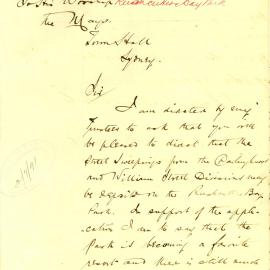 To His Worship Rushcutters Bay Park
the Mayor
Town Hall
Sydney.
Sir
I am directed by my
Trustees to ask that you will
be pleased to direct that the
Street Sweepings from the Darlinghurst
and William Street Divisions may
be deposited on the Rushcutters Bay
Park. In support of the applic-
cation I am to say that the
Park is becoming a favorite
resort and there is still much